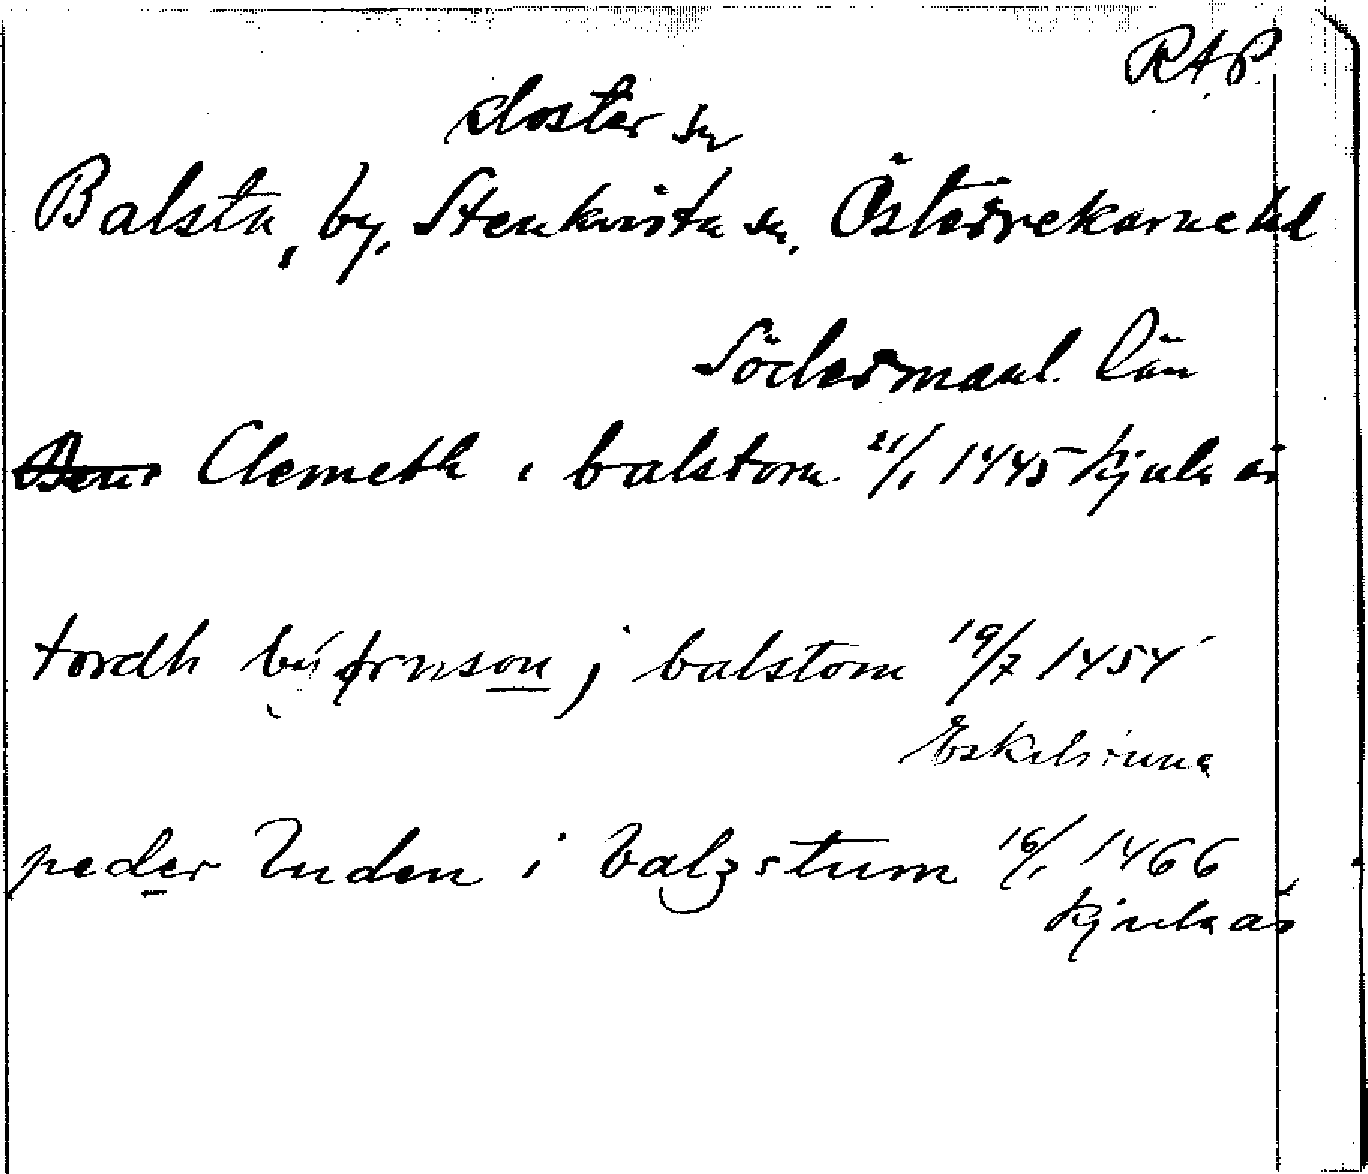 RAP
kloster sn
Balsta, by, Stenkvista sn, Österrekarne hd
Södermanl. län
Clemeth i balstom 21/1 1445 Kjula ås
tordh biørnson j balstom 19/7 1454
Eskilstuna
peder Unden i balzstum 16/1 1466
Kjula ås